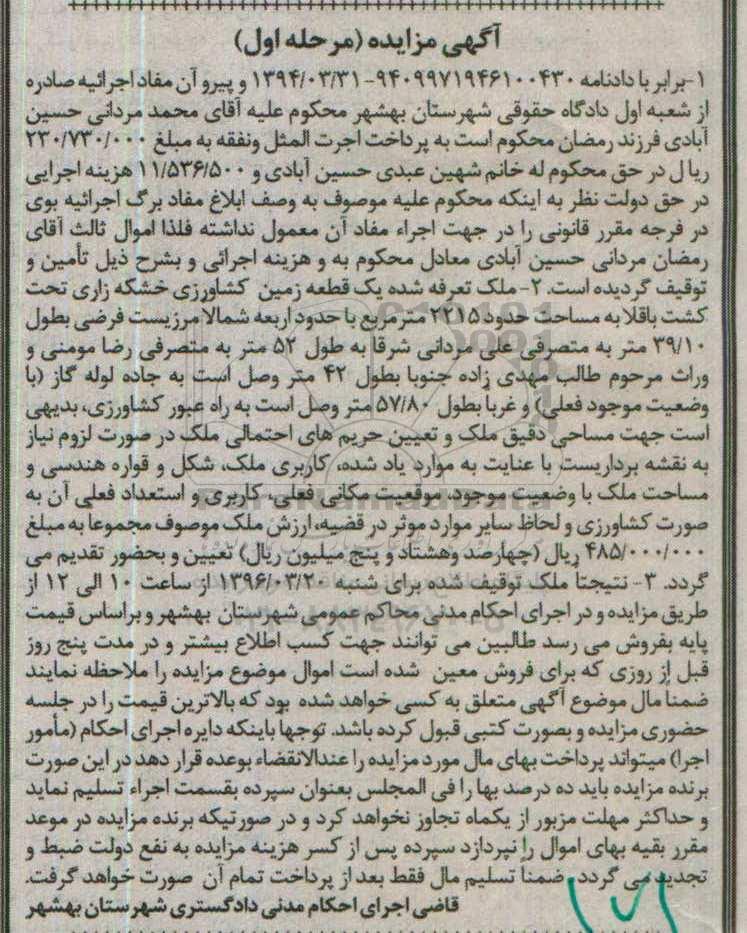 آگهی مزایده (مرحله اول)
۱-برابر با دادنامه ۹۴۰۹۹۷۱۹۴۶۱۰۰۴۳۰-۱۳۹۴/۰۳/۳۱ و پیرو آن مفاد اجرائیه صادره
از شعبه اول دادگاه حقوقی شهرستان بهشهر محکوم علیه آقای محمد مردانی حسین
آبادی فرزند رمضان محکوم است به پرداخت اجرت المثل ونفقه به مبلغ ۲۳۰/۷۳۰/۰۰۰
ریال در حق محکوم له خانم شهین عبدی حسین آبادی و ۱۱/۵۳۶/۵۰۰ هزینه اجرایی
در حق دولت نظر به اینکه محکوم علیه موصوف به وصف ابلاغ مفاد برگ اجرائیه بوی
در فرجه مقرر قانونی را در جهت اجراء مفاد آن معمول نداشته فلذا اموال ثالث آقای
رمضان مردانی حسین آبادی معادل محکوم به و هزینه اجرائی و بشرح ذیل تأمین و
توقیف گردیده است. ۲- ملک تعرفه شده یک قطعه زمین کشاورزی خشکه زاری تحت
کشت باقلا به مساحت حدود ۲۲۱۵ مترمربع با حدود اربعه شمالا مرزیست فرضی بطول
۳۹/۱۰ متر به متصرفی علی مردانی شرقا به طول ۵۲ متر به متصرفی رضا مومنی و
وراث مرحوم طالب مهدی زاده جنوبا بطول ۴۲ متر وصل است به جاده لوله گاز (با
وضعیت موجود فعلی) و غرباً بطول ۵۷/۸۰ متر وصل است به راه عبور کشاورزی، بدیهی
است جهت مساحی دقیق ملک و تعیین حریم های احتمالی ملک در صورت لزوم نیاز
به نقشه برداریست با عنایت به موارد یاد شده، کاربری ملک، شکل و قواره هندسی و
مساحت ملک با وضعیت موجود، موقعیت مکانی فعلی، کاربری و استعداد فعلی آن به
صورت کشاورزی و لحاظ سایر موارد موثر در قضیه، ارزش ملک موصوف مجموعا به مبلغ
۴۸۵/۰۰۰/۰۰۰ ریال (چهارصد وهشتاد و پنج میلیون ریال) تعیین و بحضور تقدیم می
گردد. ۳- نتیجتاً ملک توقیف شده برای شنبه ۱۳۹۶/۰۳/۲۰ از ساعت ۱۰ الی ۱۲ از
طریق مزایده و در اجرای احکام مدنی محاکم عمومی شهرستان بهشهر و براساس قیمت
پایه بفروش می رسد طالبین می توانند جهت کسب اطلاع بیشتر و در مدت پنج روز
قبل از روزی که برای فروش معین شده است اموال موضوع مزایده را ملاحظه نمایند
ضمنا مال موضوع آگهی متعلق به کسی خواهد شده بود که بالاترین قیمت را در جلسه
حضوری مزایده و بصورت کتبی قبول کرده باشد. توجها باینکه دایره اجرای احکام (مأمور
اجرا) میتواند پرداخت بهای مال مورد مزایده را عندالانقضاء بوعده قرار دهد در این صورت
برنده مزایده باید ده درصد بها را فی المجلس بعنوان سپرده بقسمت اجراء تسلیم نماید
و حداکثر مهلت مزبور از یکماه تجاوز نخواهد کرد و در صورتیکه برنده مزایده در موعد
مقرر بقیه بهای اموال را نپردازد سپرده پس از کسر هزینه مزایده به نفع دولت ضبط و
تجدید می گردد. ضمناً تسلیم مال فقط بعد از پرداخت تمام آن صورت خواهد گرفت.
قاضی اجرای احکام مدنی دادگستری شهرستان بهشهر